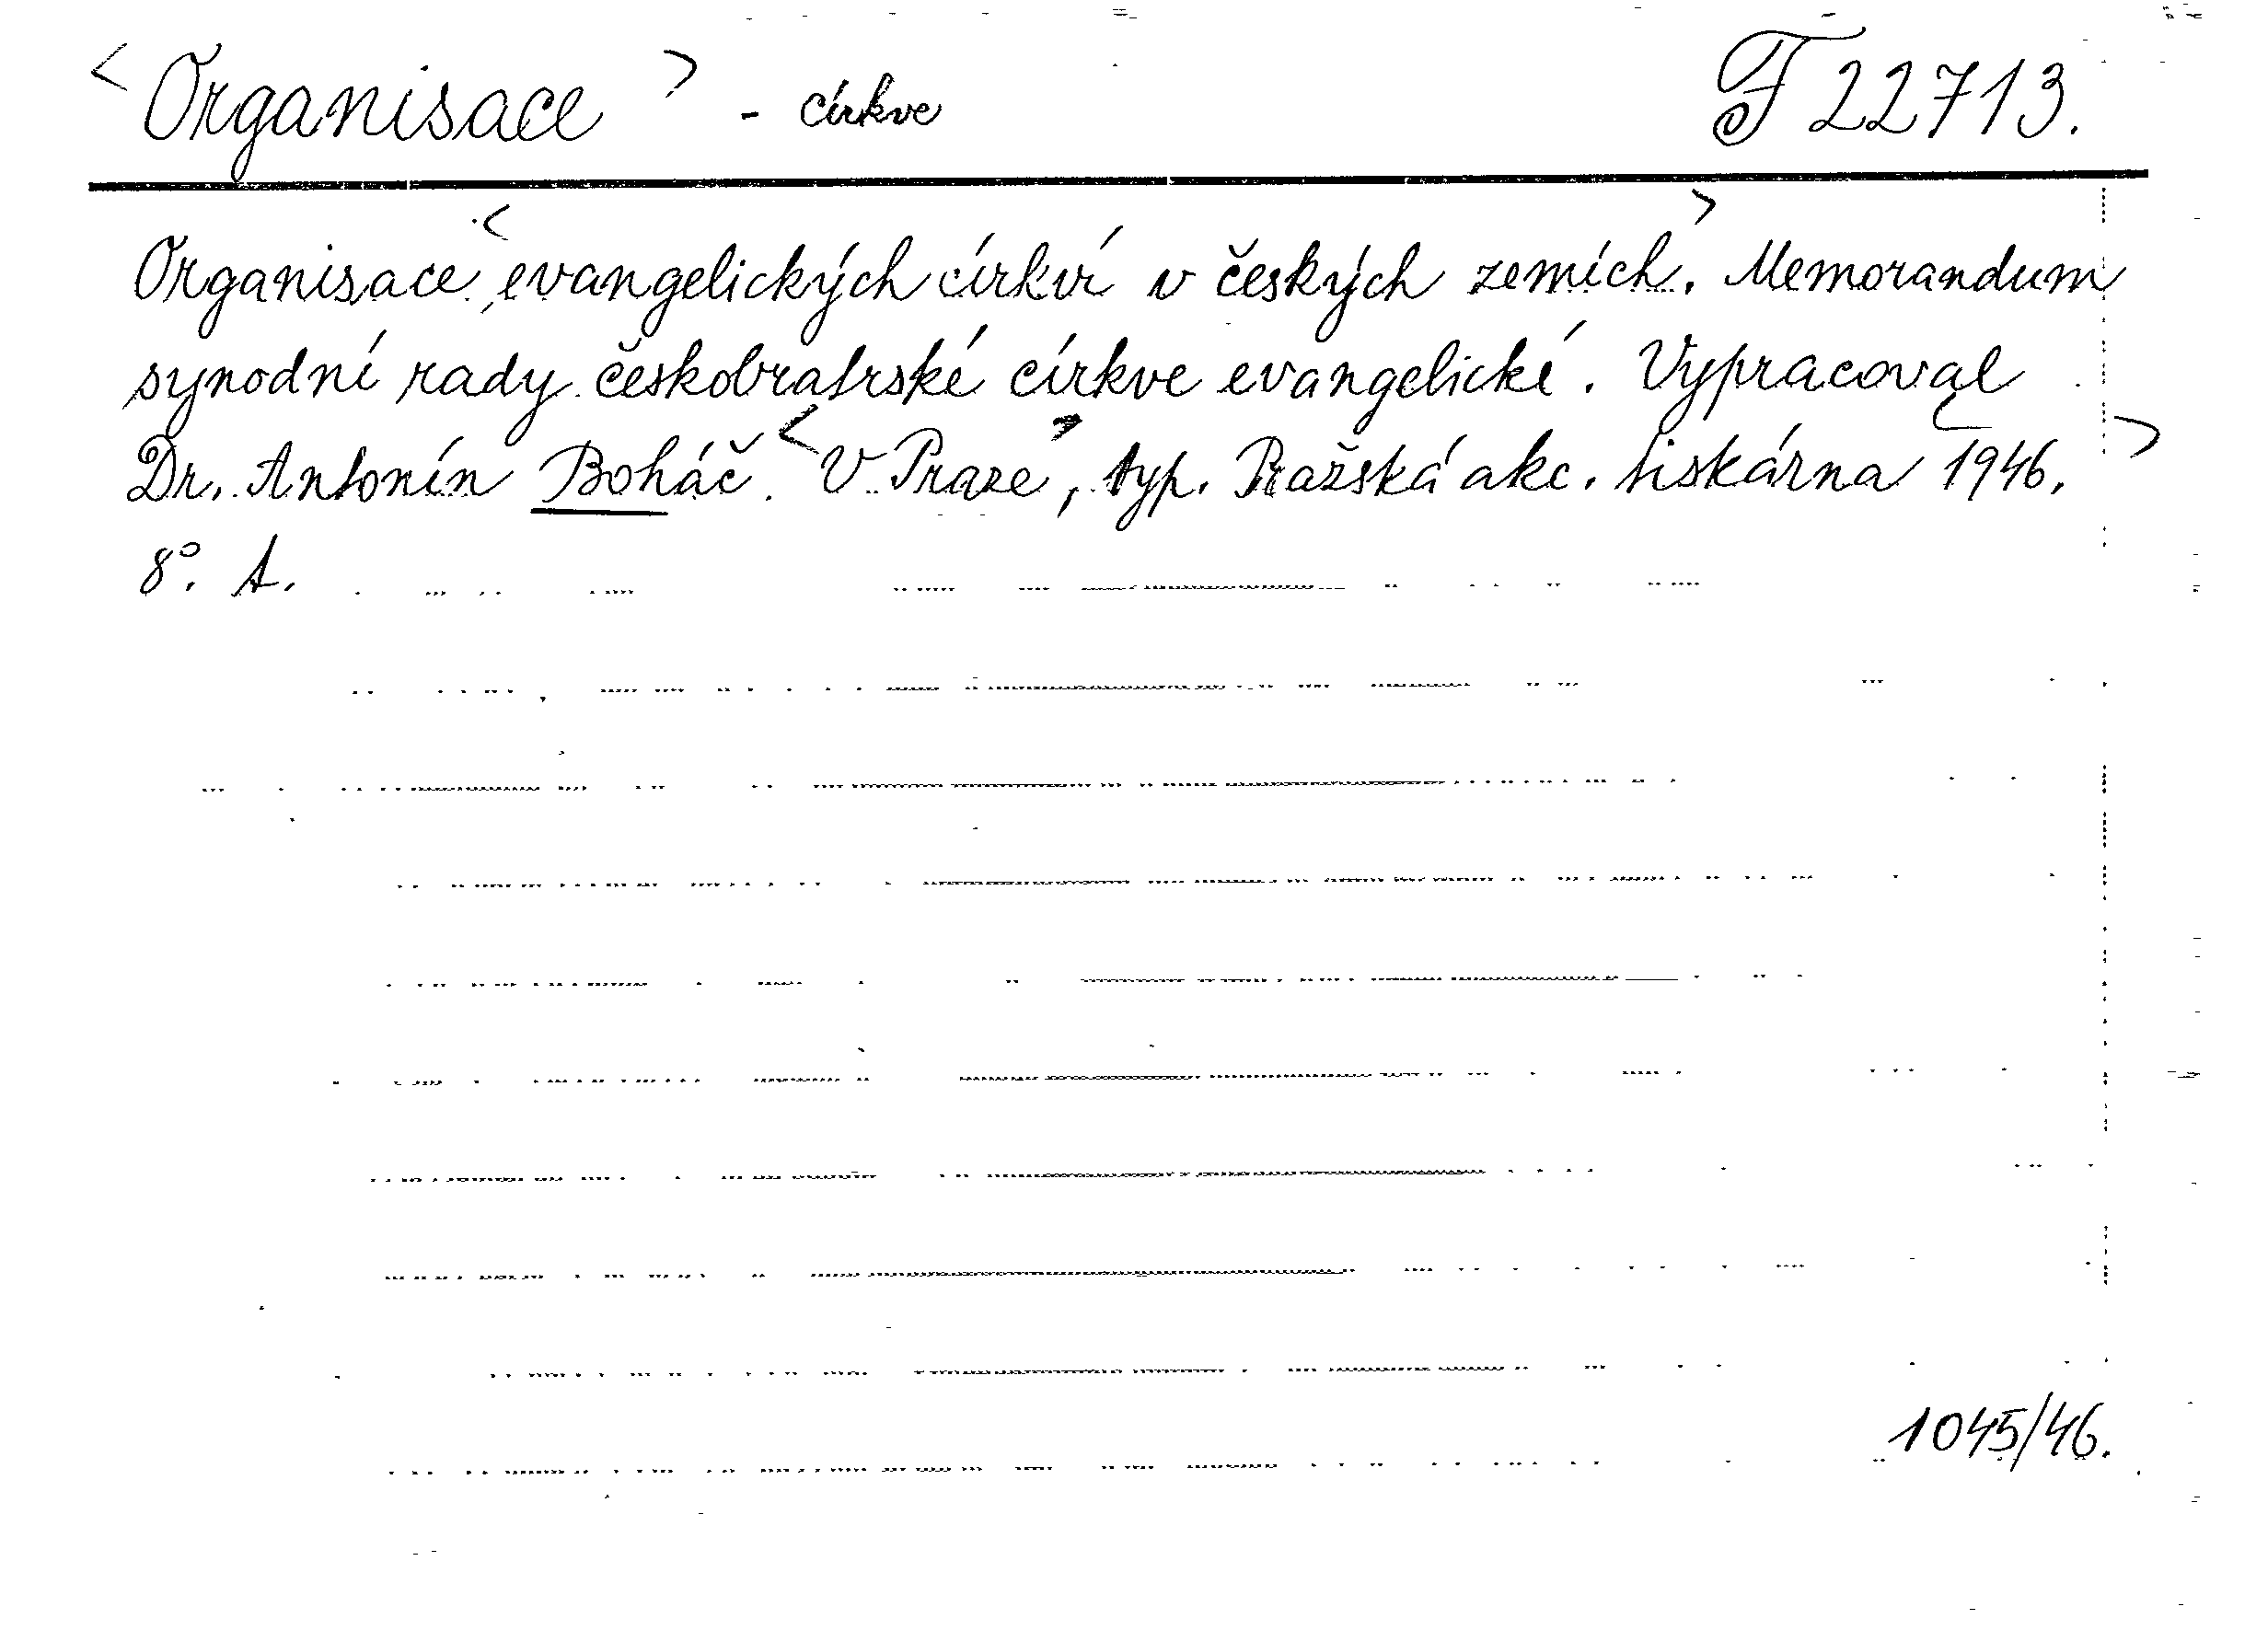 <Organisace> - církve F 22713.
Organisace <evangelických církví v českých zemích.> Memorandum
synodní rady českobratrské církve evangelické. Vypracoval
Dr. Antonín Boháč. <V Praze, typ. Pražská akc. tiskárna 1946.>
8°. A.
1045/46.